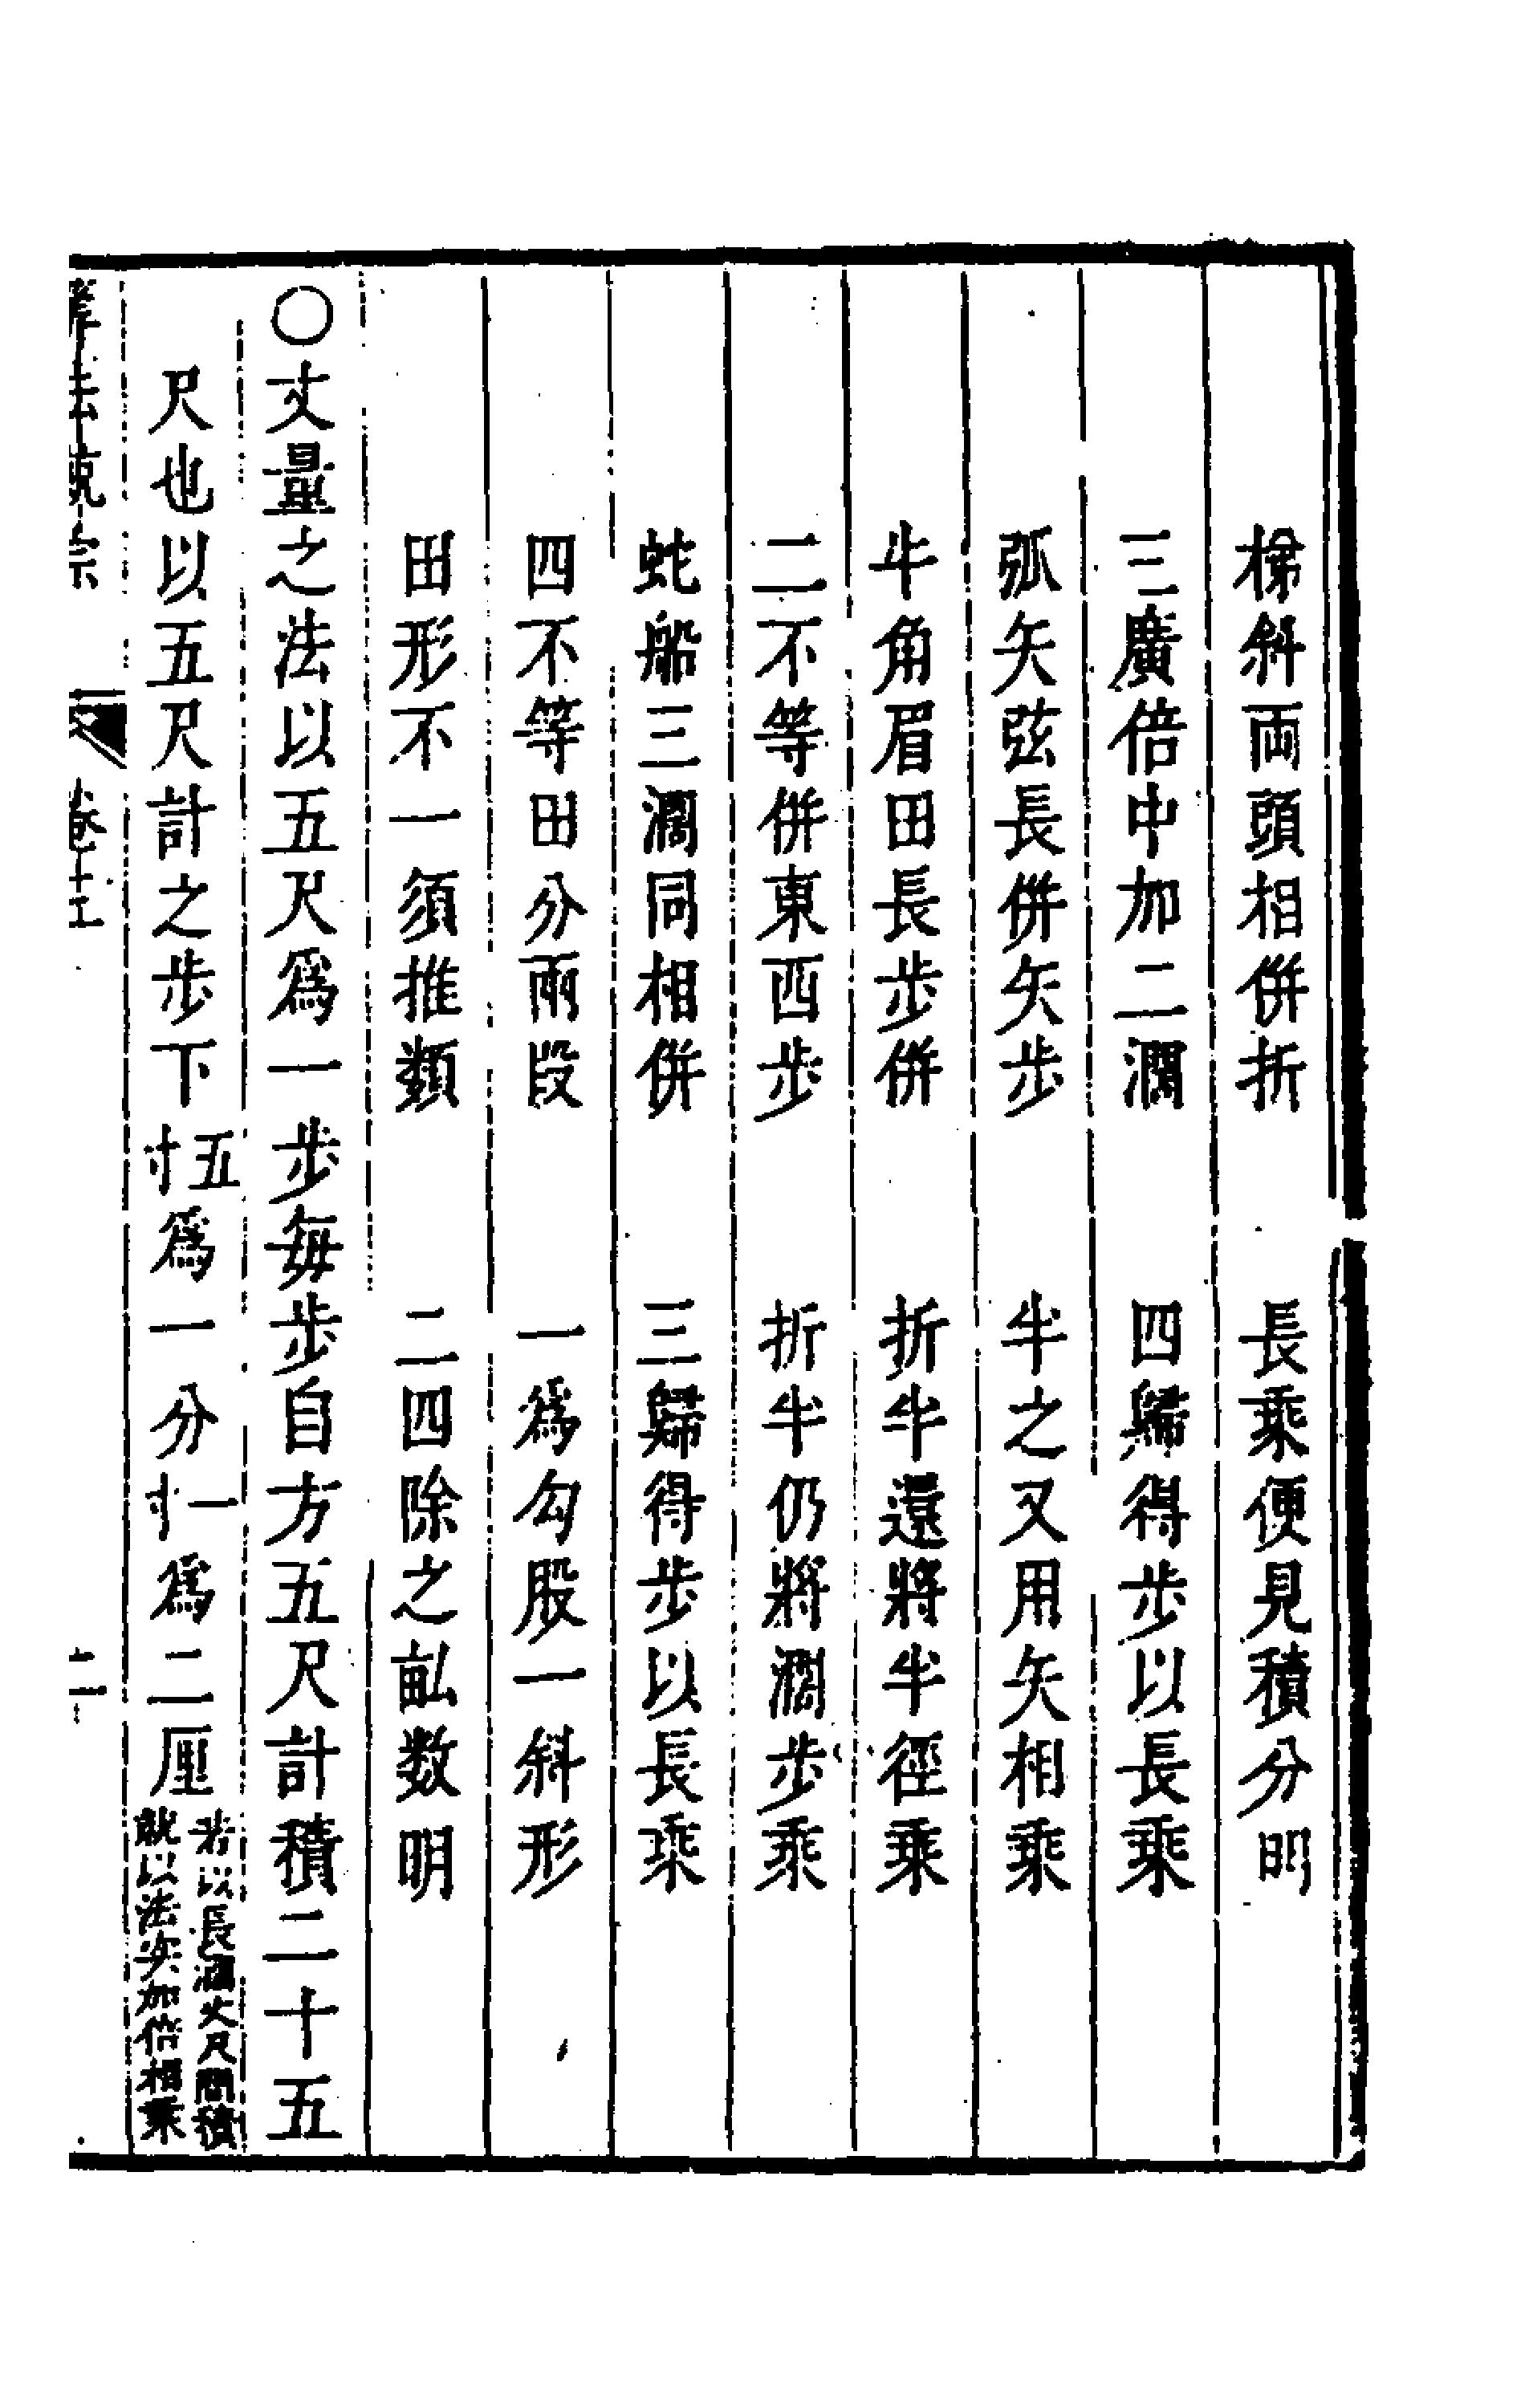 梯斜両頭相併折　長乘便見積分明
三廣倍中加二濶　四歸得步以長乘
弧矢弦長併矢步　半之又用矢相乘
牛角眉田長步併　折半還將半徑乘
二不等併東西步　折半仍將濶步乘
蛇船三濶同相併　三歸得步以長乘
四不等田分兩段　一爲勾股一斜形
田形不一須推類　二四除之畝数明
〇丈量之法以五尺爲一步每步自方五尺計積二十五
尺也以五尺計之步下五寸爲一分一寸爲二厘若以長濶丈尺問積就以法实加倍相乘
算法統宗　卷十二　二